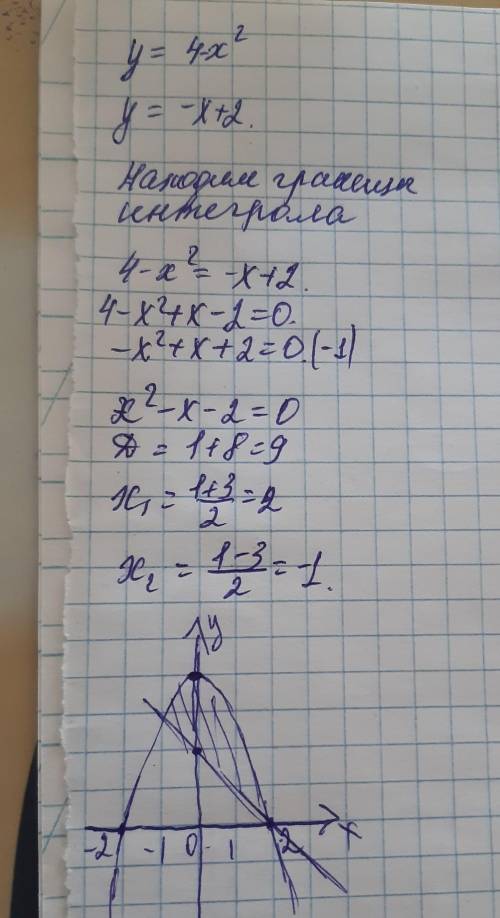 y = 4-x²
y = -x+2.
Находим границы
интеграла
4-x² = -x+2.
4-x²+x-2=0.
-x²+x+2=0.(-1)
x²-x-2=0
Д = 1+8=9
x₁ = \frac{1+3}{2} = 2
x₂ = \frac{1-3}{2} = -1.
y
-2 -1 0 1 2 x